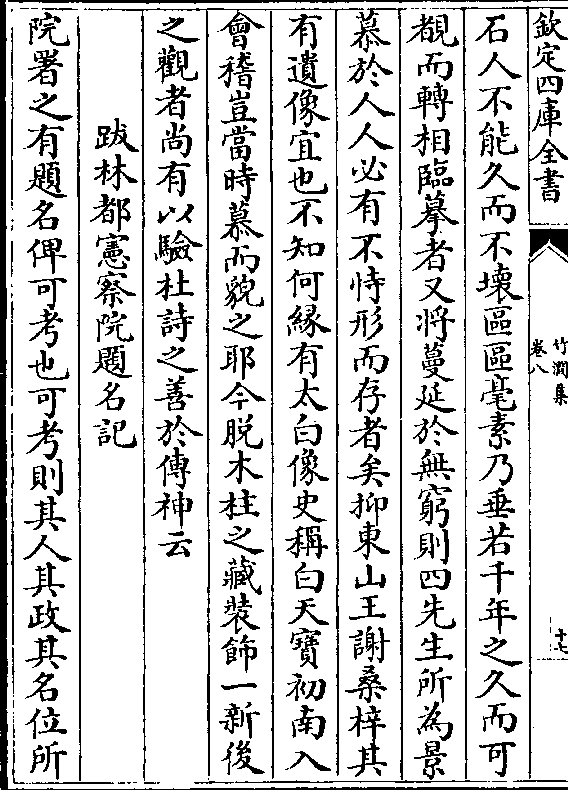 欽定四庫全書
竹澗集
卷八
十七
石人不能久而不壞區區毫素乃垂若千年之久而可
覩而轉相臨摹者又將蔓延於無窮則四先生所為景
慕於人人必有不恃形而存者矣抑東山王謝桑梓其
有遺像宜也不知何緣有太白像史稱白天寶初南入
會稽豈當時慕而貌之耶今脱木柱之藏裝飾一新後
之觀者尚有以驗杜詩之善於傳神云
跋林都憲察院題名記
院署之有題名俾可考也可考則其人其政其名位所